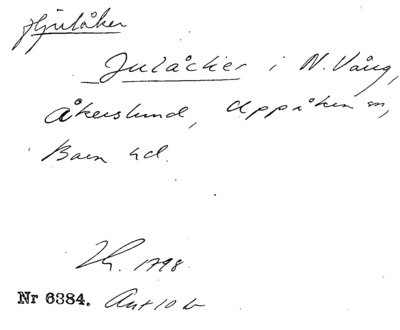 Hjulåker
Julåcker i N. Vång,
Åkerslund, Uppåkra sn,
Bara hd.
1798
Nr 6384. Ant 10 b